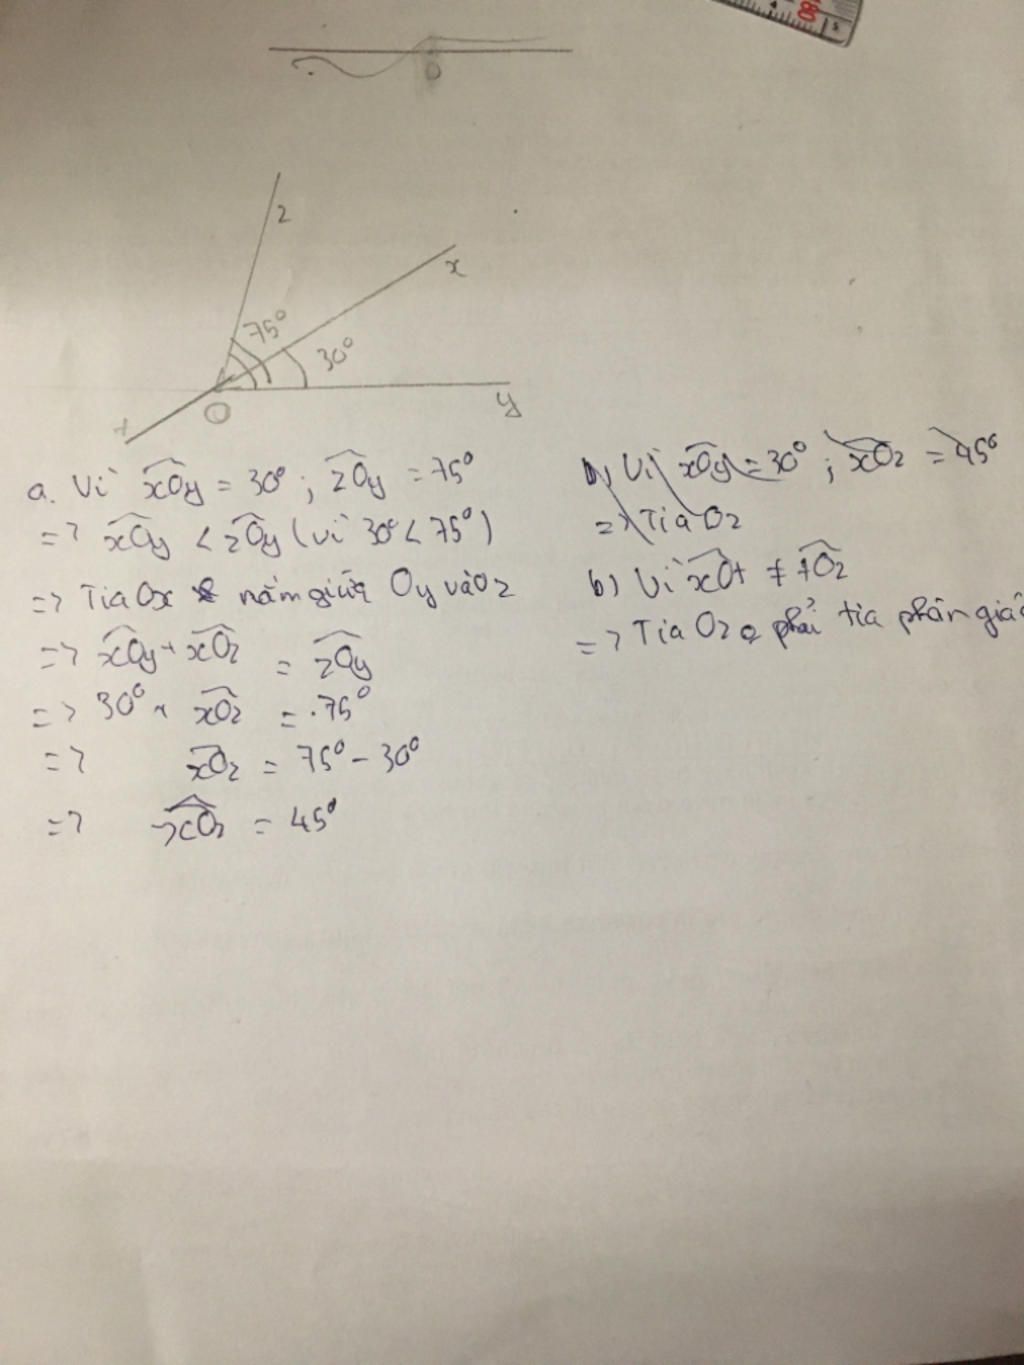 O
z
x
75°
30°
O
y
t
a. Vì xOy = 30° ; zOy = 75°
=> xOy < zOy (vì 30° < 75°)
=> Tia Ox nằm giữa Oy và Oz
=> xOy + xOz = zOy
=> 30° + xOz = 75°
=> xOz = 75° - 30°
=> xOz = 45°
b) Vì xOy = 30° ; xOz = 45°
=> Tia Oz
b) Vì xOt ≠ tOz
=> Tia Oz phải tia phân giác